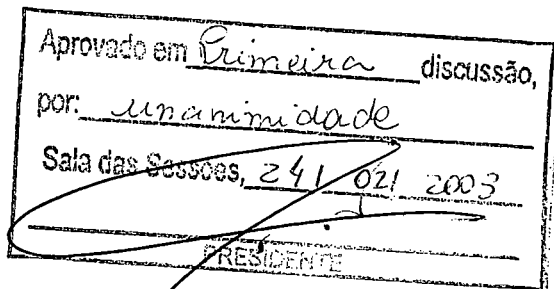 Aprovado em Primeira discussão,
por: unanimidade
Sala das Sessões, 24/ 02/ 2003
PRESIDENTE